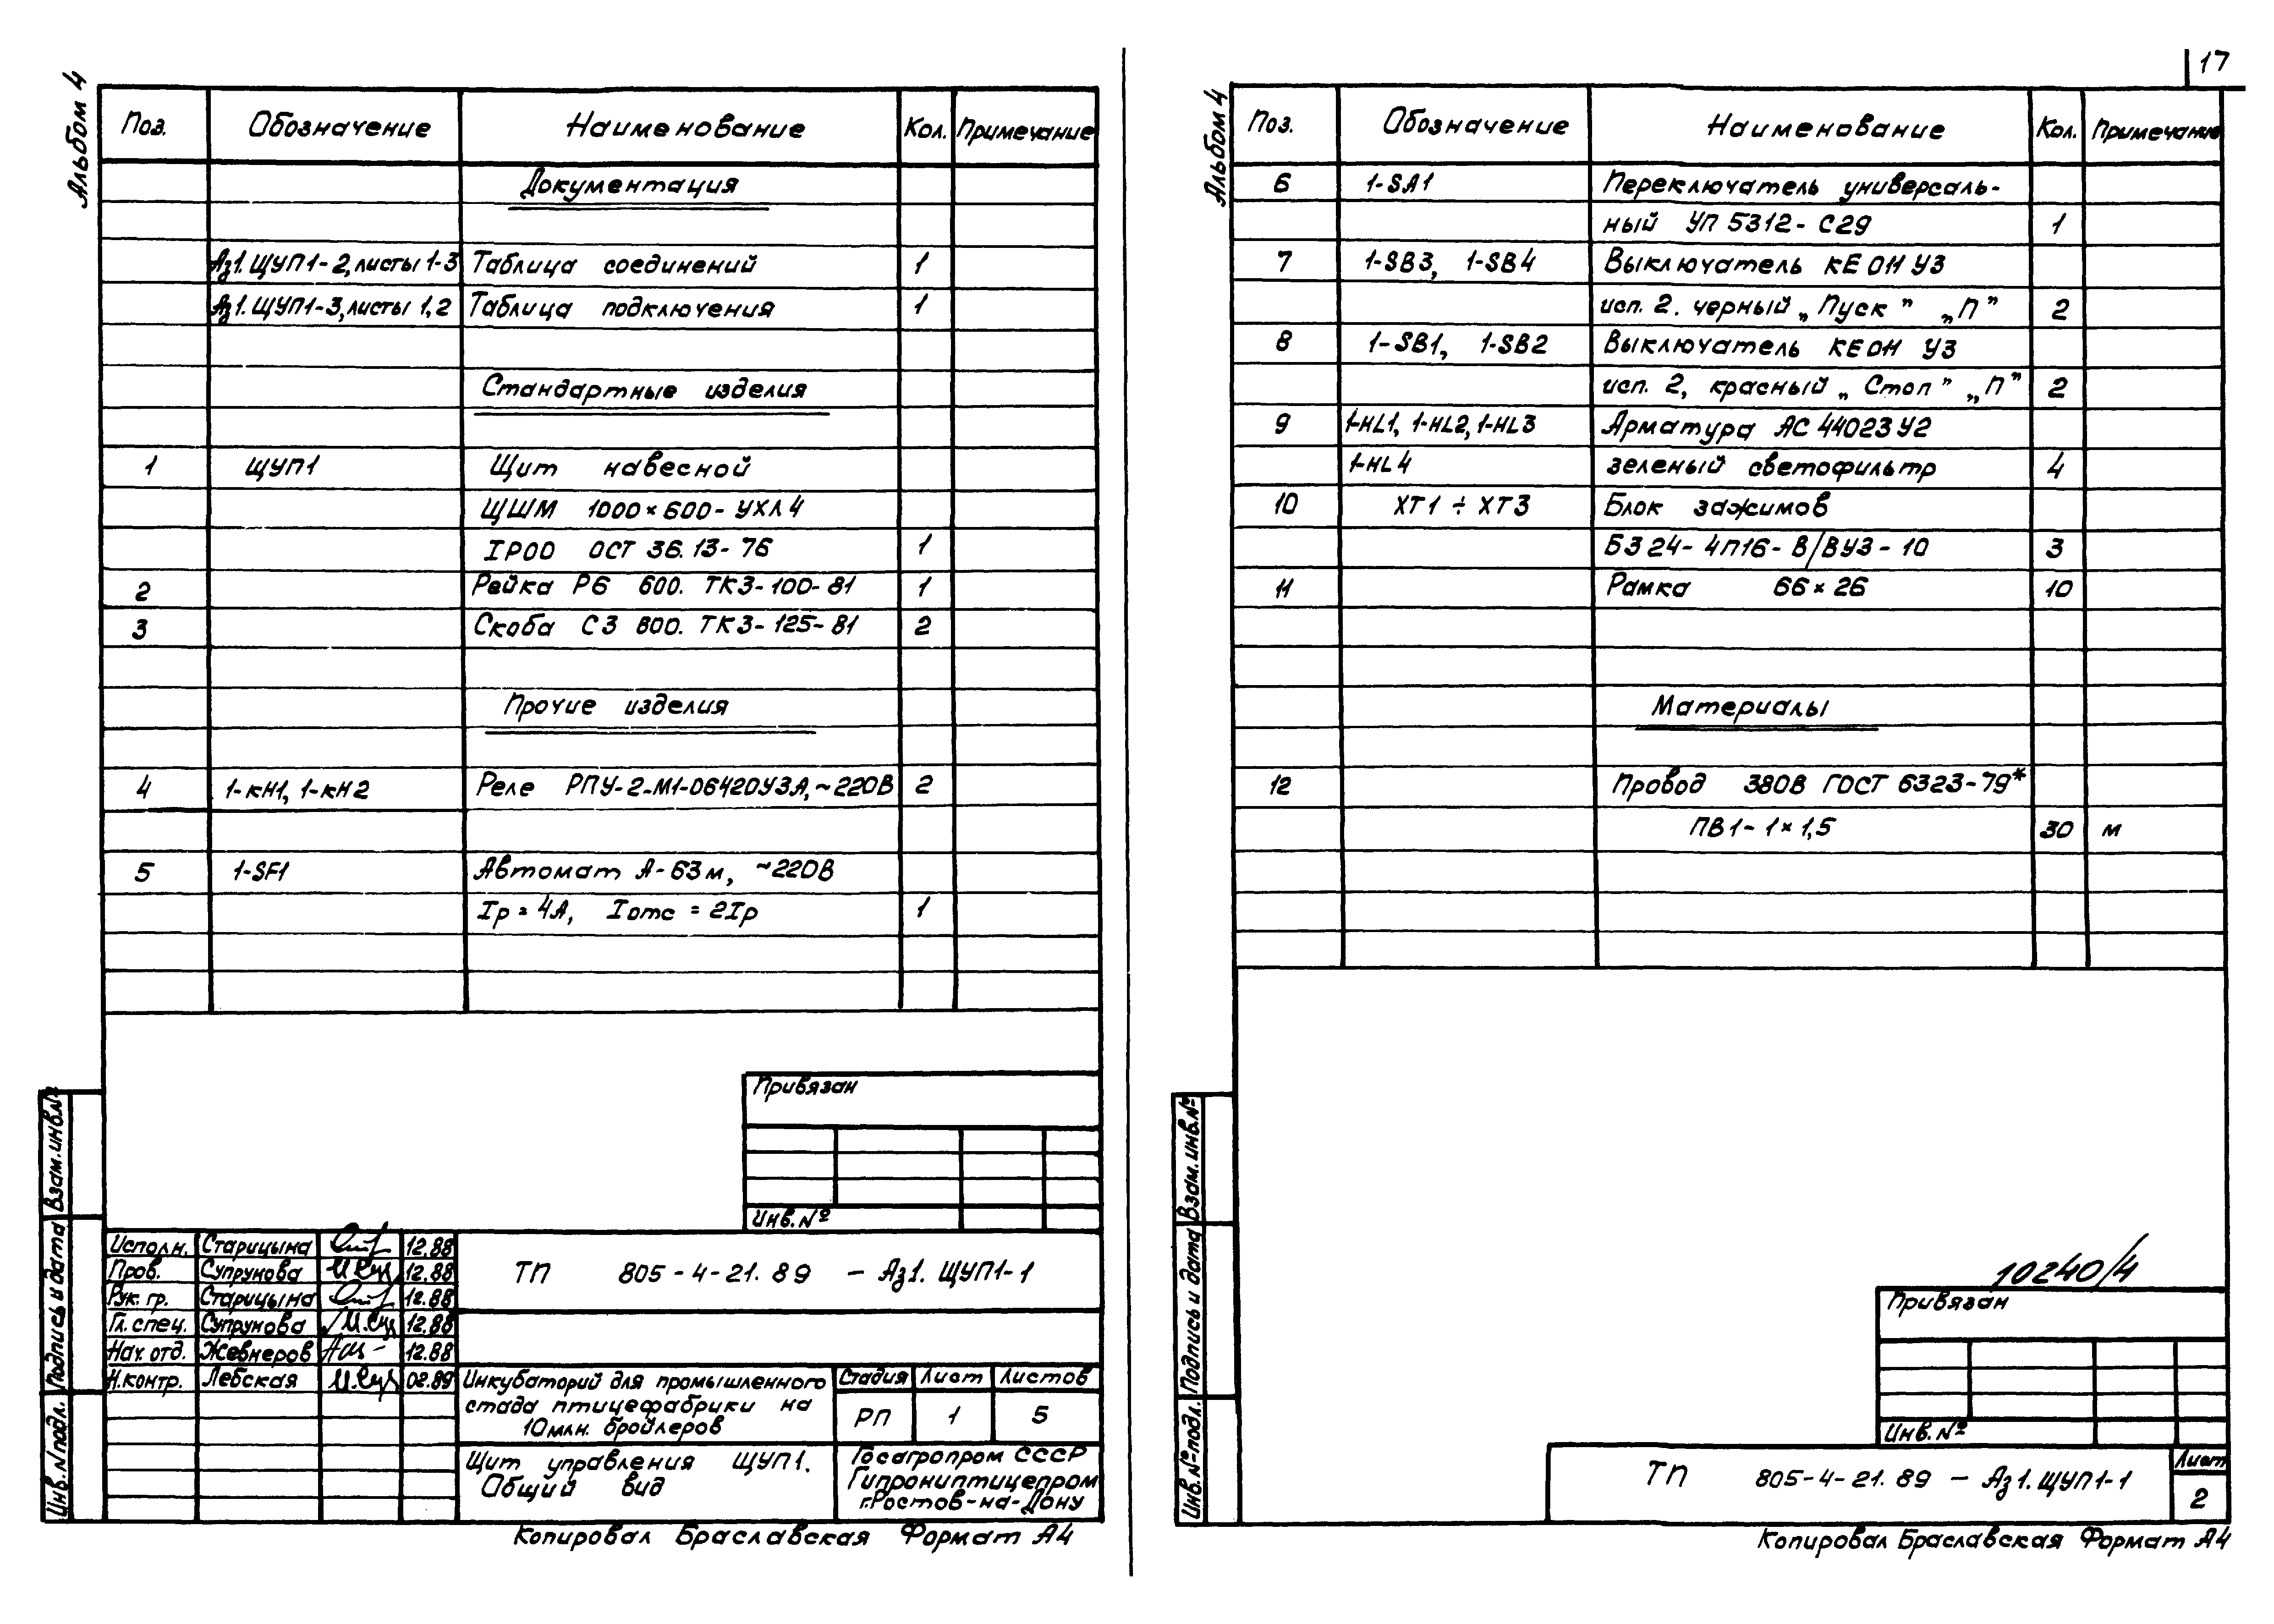 Альбом 4
Поз. Обозначение Наименование Кол. Примечание
Документация
Аз1.ЩУП1-2, листы 1-3 Таблица соединений 1
Аз1.ЩУП1-3, листы 1,2 Таблица подключения 1
Стандартные изделия
1 ЩУП1 Щит навесной
ЩШМ 1000×600-УХЛ4
IP00 ОСТ 36.13-76 1
2 Рейка Р6 600. ТК3-100-81 1
3 Скоба С3 800. ТК3-125-81 2
Прочие изделия
4 1-КН1, 1-КН2 Реле РПУ-2-М1-06420У3А, ~220В 2
5 1-SF1 Автомат А-63м, ~220В
Iр = 4А, Iотс = 2Iр 1
Привязан
Инв. №
Исполн. Старицына 12.88
Пров. Супрунова 12.88
Рук. гр. Старицына 12.88
Гл. спец. Супрунова 12.88
Нач. отд. Жевнеров 12.88
Н.контр. Лебская 02.89
ТП 805-4-21.89 - Аз1. ЩУП1-1
Инкубаторий для промышленного
стада птицефабрики на
10млн. бройлеров
Стадия Лист Листов
РП 1 5
Щит управления ЩУП1.
Общий вид
Госагропром СССР
Гипрониптицепром
г.Ростов-на-Дону
Взам.инв.№
Подпись и дата
Инв.№подл.
Копировал Браславская Формат А4
17
Альбом 4
Поз. Обозначение Наименование Кол. Примечание
6 1-SA1 Переключатель универсаль-
ный УП 5312-С29 1
7 1-SB3, 1-SB4 Выключатель КЕ 011 У3
исп. 2. черный „Пуск" „П" 2
8 1-SB1, 1-SB2 Выключатель КЕ 011 У3
исп. 2, красный „Стоп" „П" 2
9 1-HL1, 1-HL2, 1-HL3 Арматура АС 44023У2
1-HL4 зеленый светофильтр 4
10 XT1 ÷ XT3 Блок зажимов
БЗ 24-4П16-В/ВУ3-10 3
11 Рамка 66×26 10
Материалы
12 Провод 380В ГОСТ 6323-79*
ПВ1-1×1,5 30 м
10240/4
Привязан
Инв. №
ТП 805-4-21.89 - Аз1.ЩУП1-1
Лист
2
Взам.инв.№
Подпись и дата
Инв.№подл.
Копировал Браславская Формат А4